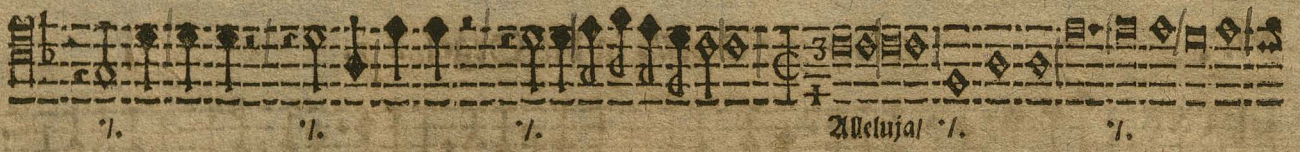 ·/. ·/. ·/. Alleluja/ ·/. ·/.